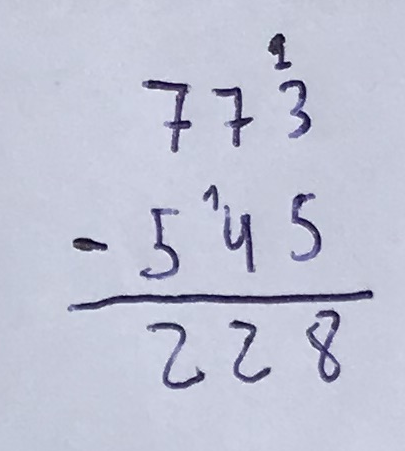 1
773
- 5 ¹45
228